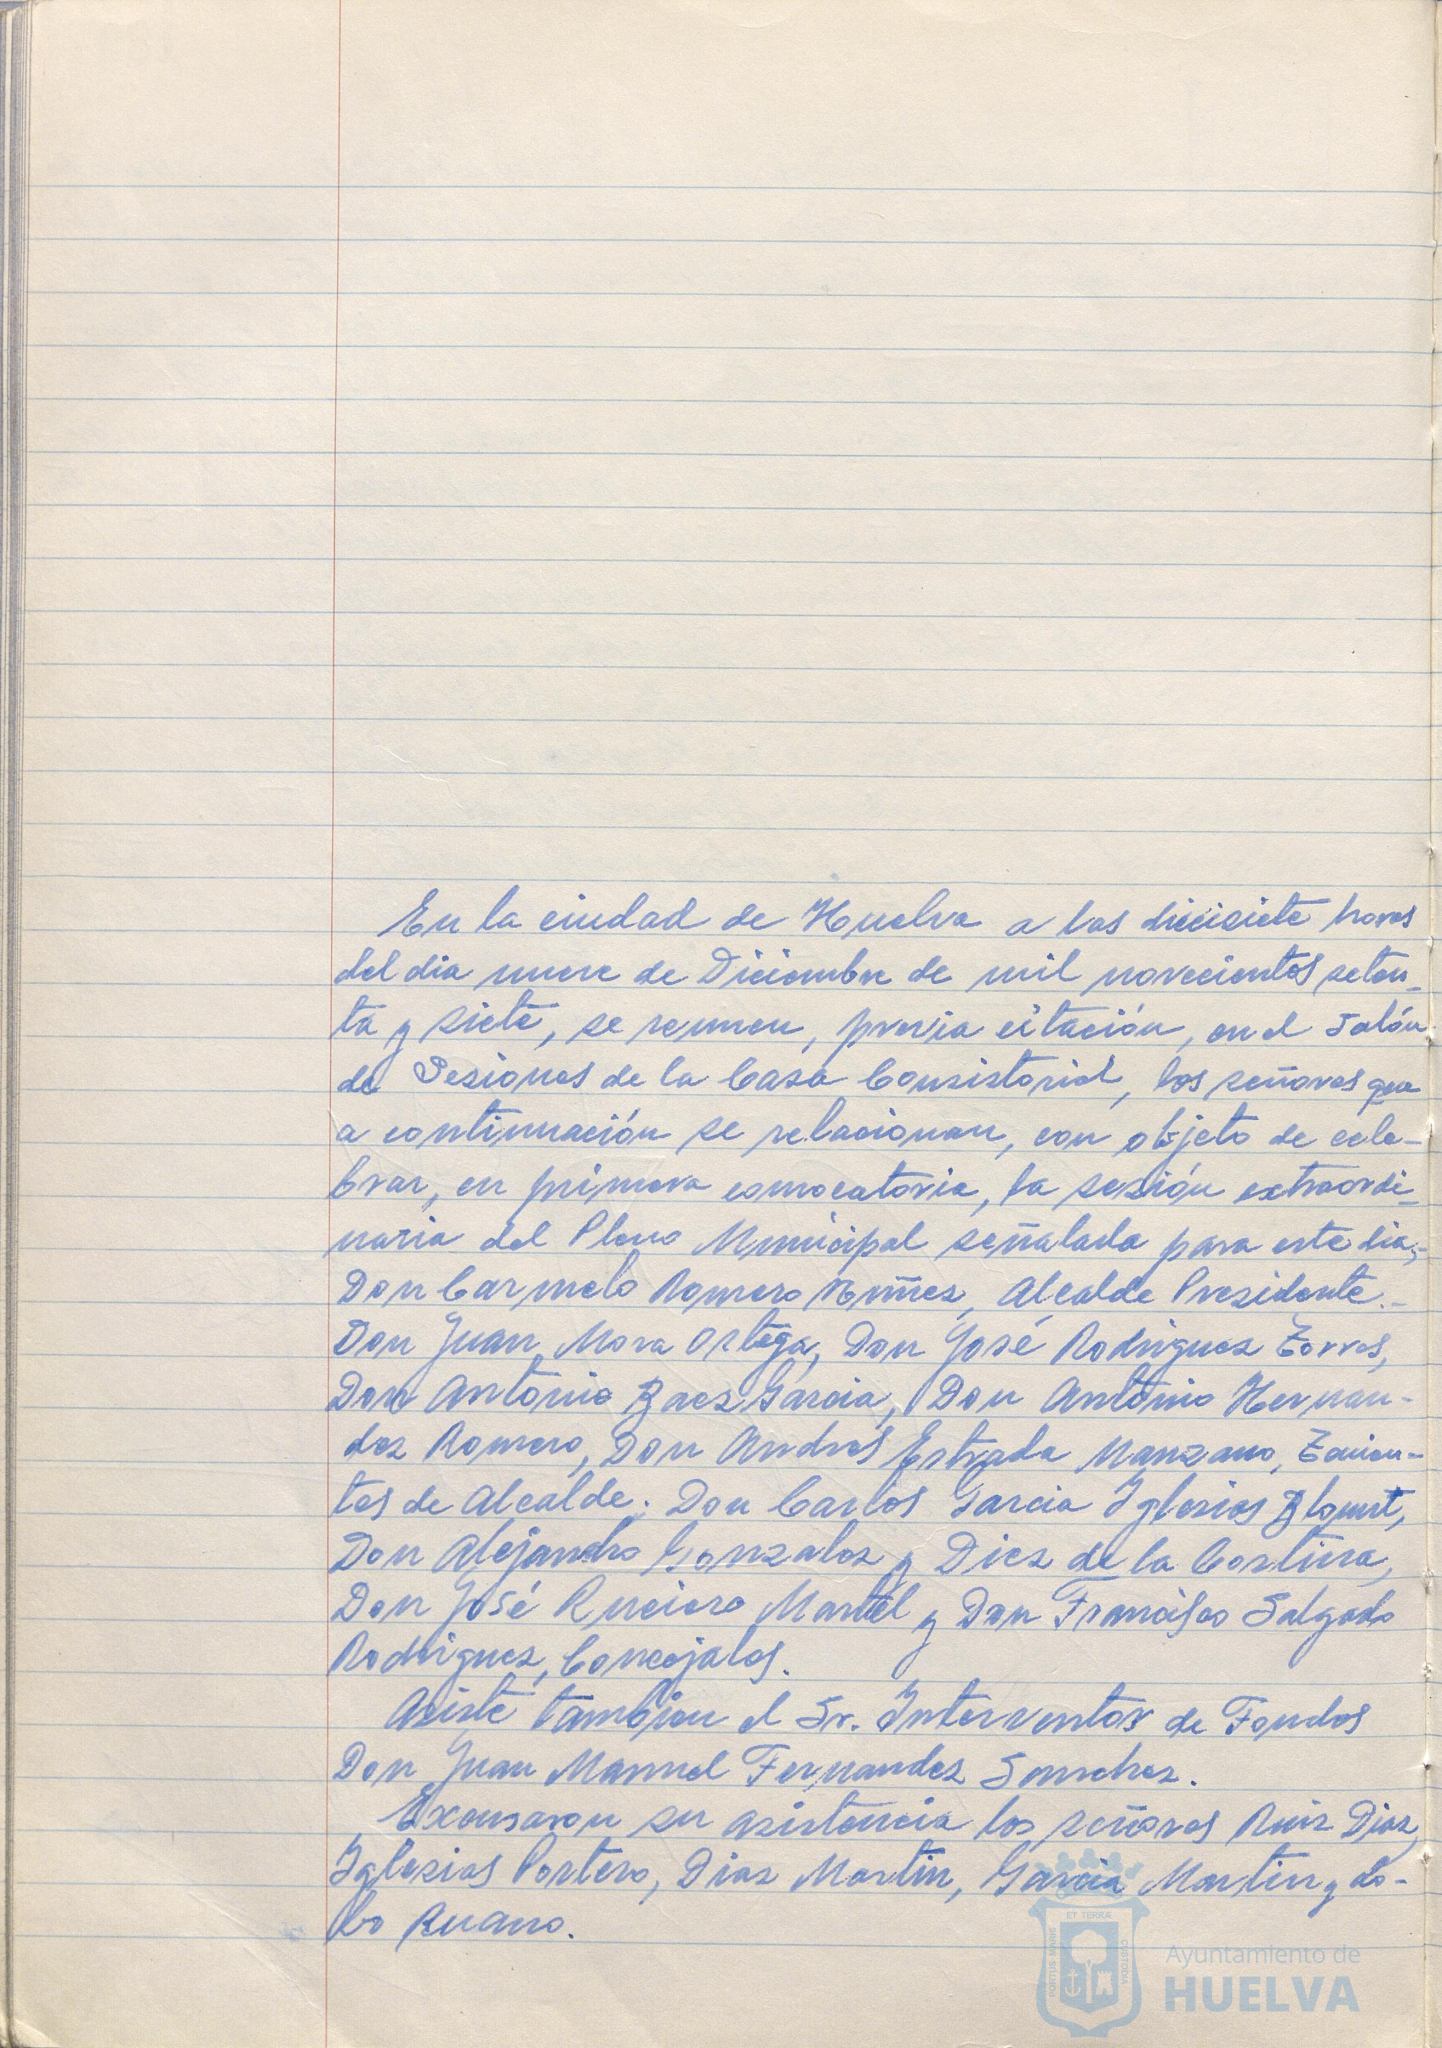 En la ciudad de Huelva a las diecisiete horas
del dia nueve de Diciembre de mil novecientos seten-
ta y siete, se reunen, previa citación, en el Salón
de Sesiones de la Casa Consistorial, los señores que
a continuación se relacionan, con objeto de cele-
brar, en primera convocatoria, la sesión extraordi-
naria del Pleno Municipal señalada para este dia,-
Don Carmelo Romero Núñez, Alcalde Presidente.-
Don Juan Mora Ortega, Don José Rodriguez Torres,
Don Antonio Baez Garcia, Don Antonio Hernan-
dez Romero, Don Andres Estrada Manzano, Tenien-
tes de Alcalde; Don Carlos Garcia Iglesias Blount,
Don Alejandro Gonzalez y Diez de la Cortina,
Don José Ruciero Martel y Don Francisco Salgado
Rodriguez, Concejales.
Asiste tambien el Sr. Interventor de Fondos
Don Juan Manuel Fernandez Sanchez.
Excusaron su asistencia los señores Ruiz Diaz,
Iglesias Portero, Diaz Martin, Garcia Martin y Lo-
bo Ruano.
PORTUS MARIS
ET TERRAE
CUSTODIA
Ayuntamiento de
HUELVA